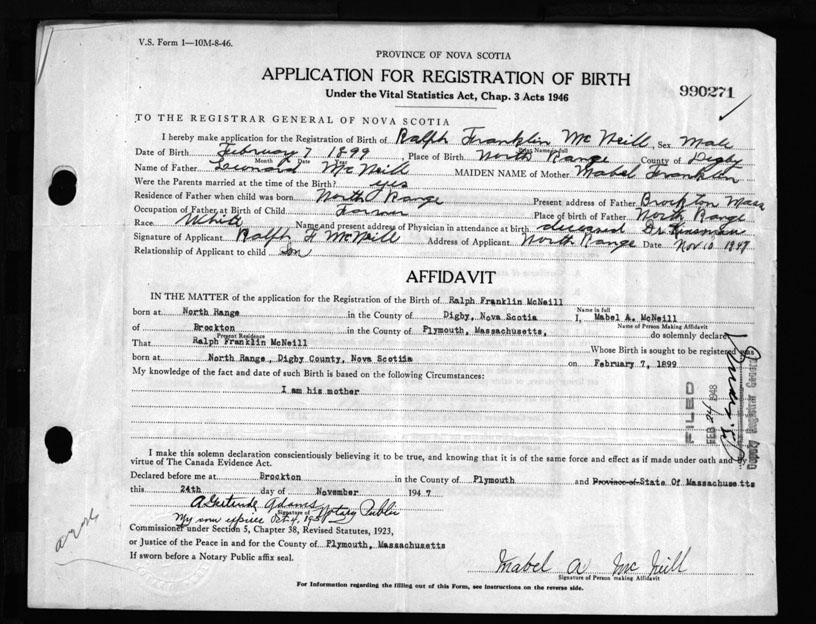 V.S. Form 1—10M-8-46.
PROVINCE OF NOVA SCOTIA
APPLICATION FOR REGISTRATION OF BIRTH
990271
Under the Vital Statistics Act, Chap. 3 Acts 1946
TO THE REGISTRAR GENERAL OF NOVA SCOTIA
I hereby make application for the Registration of Birth of Ralph Franklin McNeill, Sex Male
Print Name in full
Date of Birth February 7 1899 Place of Birth North Range County of Digby
Month Date Year
Name of Father Leonard McNeill MAIDEN NAME of Mother Mabel Franklin
Were the Parents married at the time of the Birth? yes
Residence of Father when child was born North Range Present address of Father Brockton Mass
Occupation of Father at Birth of Child Farmer Place of birth of Father North Range
Race White Name and present address of Physician in attendance at birth deceased Dr Kinsman
Signature of Applicant Ralph F McNeill Address of Applicant North Range Date Nov 10 1947
Relationship of Applicant to child Son
AFFIDAVIT
IN THE MATTER of the application for the Registration of the Birth of Ralph Franklin McNeill
Name in full
born at North Range in the County of Digby, Nova Scotia I, Mabel A. McNeill
Name of Person Making Affidavit
of Brockton in the County of Plymouth, Massachusetts, do solemnly declare
Present Residence
That Ralph Franklin McNeill Whose Birth is sought to be registered was
born at North Range, Digby County, Nova Scotia on February 7, 1899
My knowledge of the fact and date of such Birth is based on the following Circumstances:
I am his mother
FILED
FEB 24 1948
Deputy Registrar General
I make this solemn declaration conscientiously believing it to be true, and knowing that it is of the same force and effect as if made under oath and by
virtue of The Canada Evidence Act.
Declared before me at Brockton in the County of Plymouth and Province of State Of Massachusetts
this 24th day of November 1947
A Gertrude Adams Notary Public
Signature of
My com expires Oct 4, 1951
Commissioner under Section 5, Chapter 38, Revised Statutes, 1923,
or Justice of the Peace in and for the County of Plymouth, Massachusetts
If sworn before a Notary Public affix seal.
Mabel A McNeill
Signature of Person making Affidavit
For Information regarding the filling out of this Form, see instructions on the reverse side.